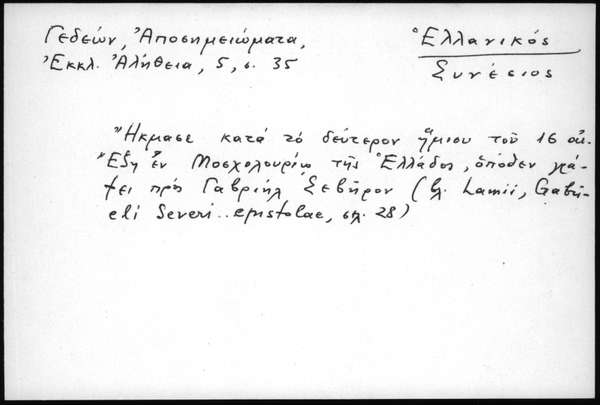 Γεδεών, Ἀποσημειώματα,
Ἐκκλ. Ἀλήθεια, 5, σ. 35
Ἑλλανικός
Συνέσιος
Ἤκμασε κατά τό δεύτερον ἥμισυ τοῦ 16 αἰ.
Ἔζη ἐν Μοσχολουρίῳ τῆς Ἑλλάδος, ὁπόθεν γρά-
φει πρός Γαβριήλ Σεβῆρον (βλ. Lamii, Gabri-
eli Severi .. epistolae, σελ. 28)